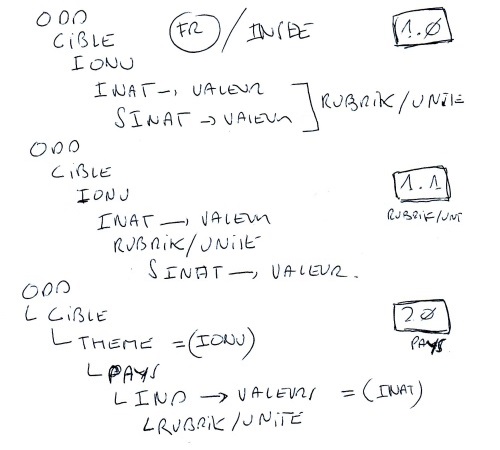 ODD
CIBLE FR / INSEE 1.0
IONU
INAT → VALEUR
SINAT → VALEUR RUBRIK/UNITE
ODD
CIBLE
IONU 1.1
INAT → VALEUR RUBRIK/UNIT
RUBRIK/UNITE
SINAT → VALEUR.
ODD
CIBLE 20
THEME = (IONU) PAYS
PAYS
IND → VALEURS = (INAT)
RUBRIK/UNITE